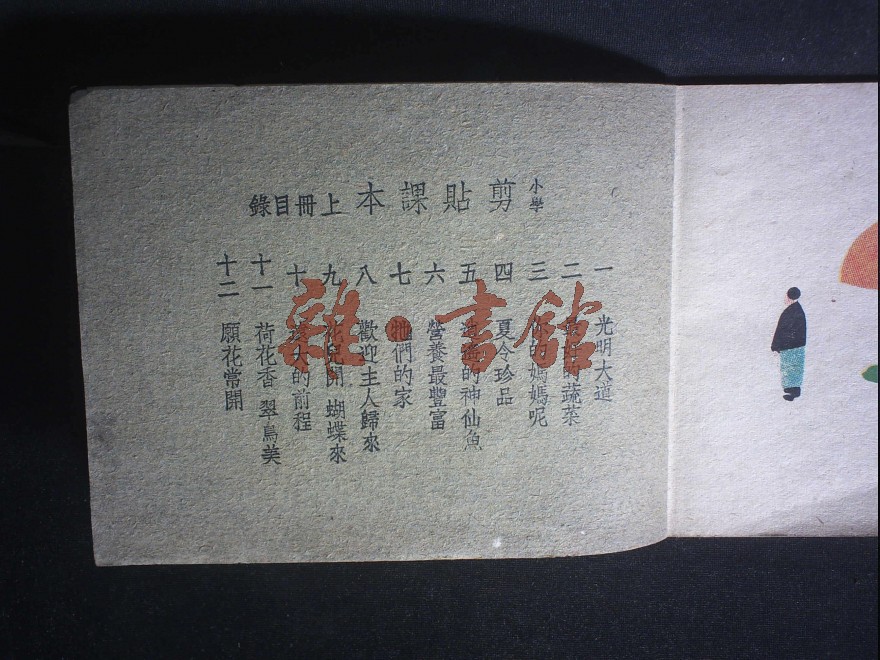 小學
剪貼課本 上冊目錄
一 光明大道
二 的蔬菜
三 你的媽媽呢
四 夏令珍品
五 逍遙的神仙魚
六 營養最豐富
七 牠們的家
八 歡迎主人歸來
九 花兒開 蝴蝶來
十 遠大的前程
十一 荷花香 翠鳥美
十二 願花常開
雜·書館